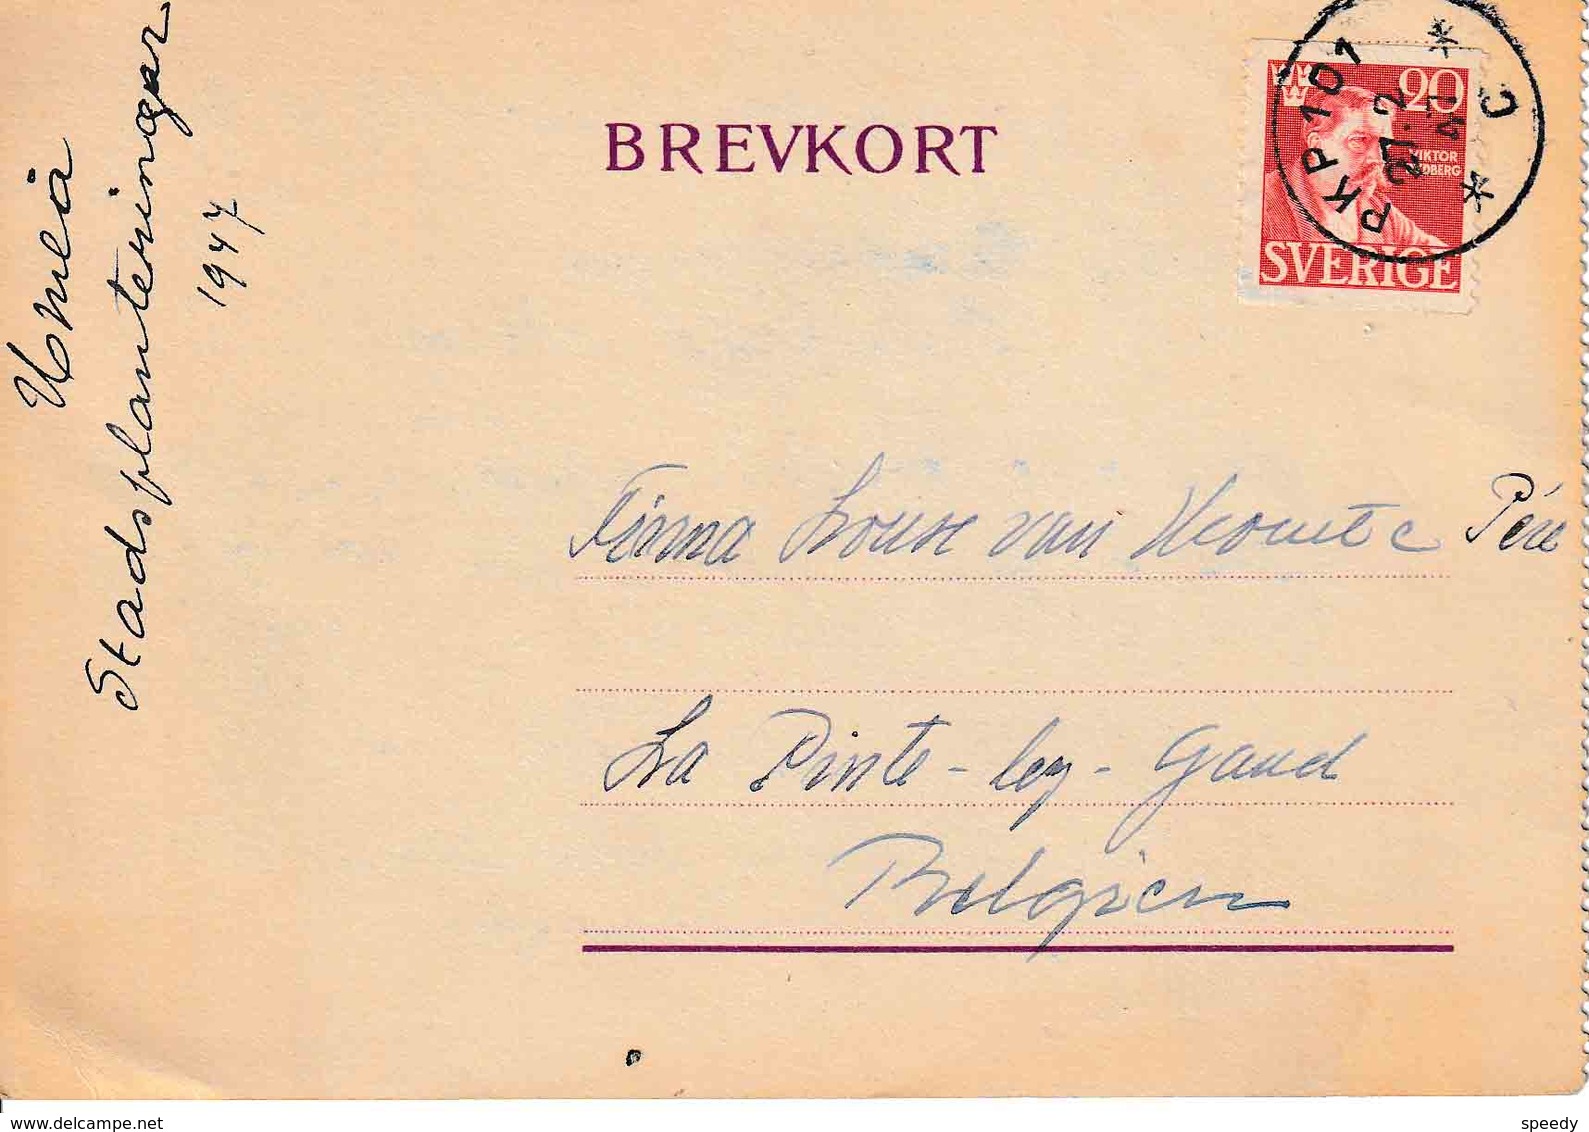 Umeå
Stadsplanteringar
1947
BREVKORT
20
VIKTOR
RYDBERG
SVERIGE
PKP 101
27.2
47
* C *
Firma Louse van Houtte Pére
La Pinte-lez-Gand
Belgien
www.delcampe.net
speedy